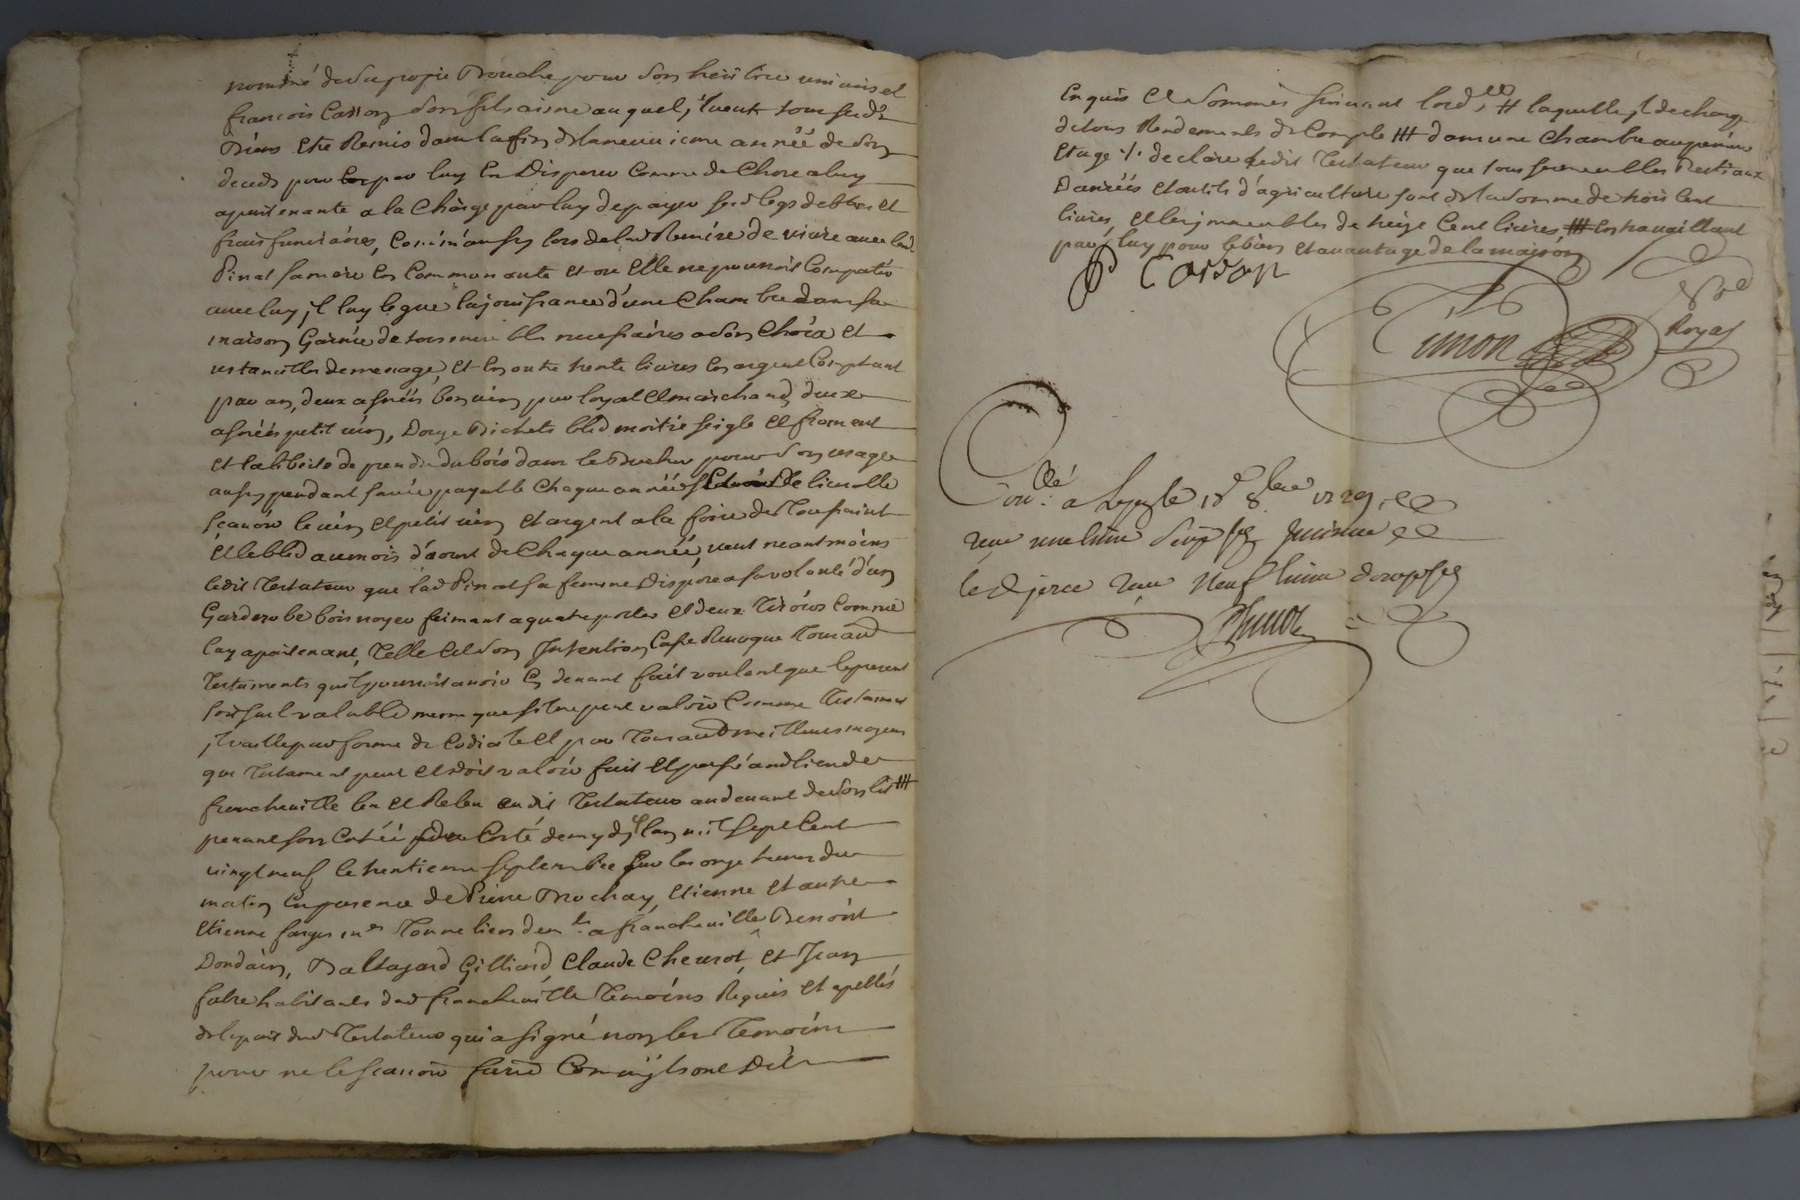 nommé de sa propre Bouche pour son heritier universel
françois Casson son fils aisné auquel, il veut tous sesd.
Biens etre Remis dans la fin de la neuvieme année de son
deceds pour par luy En Disposer Comme de Chose a luy
apartenante a la Charge par luy de payer sesd legs debtes et
frais funeraires, Comm'aussy lors de lad Remise de vivre avec lad.
Pinat sa mere En Communauté et ou Elle ne pourroit Compatir
avec luy, il luy legue la jouissance d'une Chambre dans sa
maison Garnie de tous meubles necessaires a son Choix et
ustancilles de menage, et En outre trente livres En argent Comptant
par an, deux asnées bon vin pur loyal et marchand, deux
asnées petit vin, Douze Bichets bled moitié seigle et froment
et la liberté de prendre du bois dans le Bucher pour son usage
aussy pendant sa vie payable Chaque année
sçavoir le vin et petit vin et argent a la foire de Toussaint
Et le bled au mois d'aoust de Chaque année, veut neantmoins
ledit Testateur que lad Pinat sa femme Dispose a sa volonté d'un
Garderobe bois noyer fermant a quatre portes et deux Tiroirs Comme
luy apartenant, Telle est son Intention Casse Revoque Tous aud
Testaments qu'il pourroit avoir Cy devant fait voulant que le present
soit seul valable meme que s'il ne peut valoir Comme Testament
il vaille par forme de Codicile et par Tous aud meilleurs moyens
que Testament peut et doit valoir fait et passé aud lieu de
francheville leu et Releu audit Testateur au devant de son lit ##
prenant son Entrée du Costé de midy l'an mil sept Cent
vingt neuf le trentieme septembre sur les onze heures du
matin En presence de Pierre Brochay, Etienne et autre
Etienne farges Tonneliers dem.t a francheville Benoist
Dondain, Baltazard Gilliard, Claude Chevrot, et Jean
fabre habitants dud francheville Temoins Requis et apellés
de la part dud Testateur qui a signé non les Temoins
pour ne le sçavoir faire Comm'ils ont Dit
Enquis et sommés suivant l'ord.ce # laquelle il decharge
de tous Rendements de Compte ## dans une Chambre au premier
Etage ·/· declare ledit Testateur que tous ses meubles Bestiaux
Danrées et outils d'agriculture sont de la somme de trois Cent
livres, et les immeubles de treize Cent livres ### En travaillant
par luy pour le bien et avantage de la maison
Casson
Simon
Royal
Con.llé a le 1729
reçu une livre
le reçu neuf livres